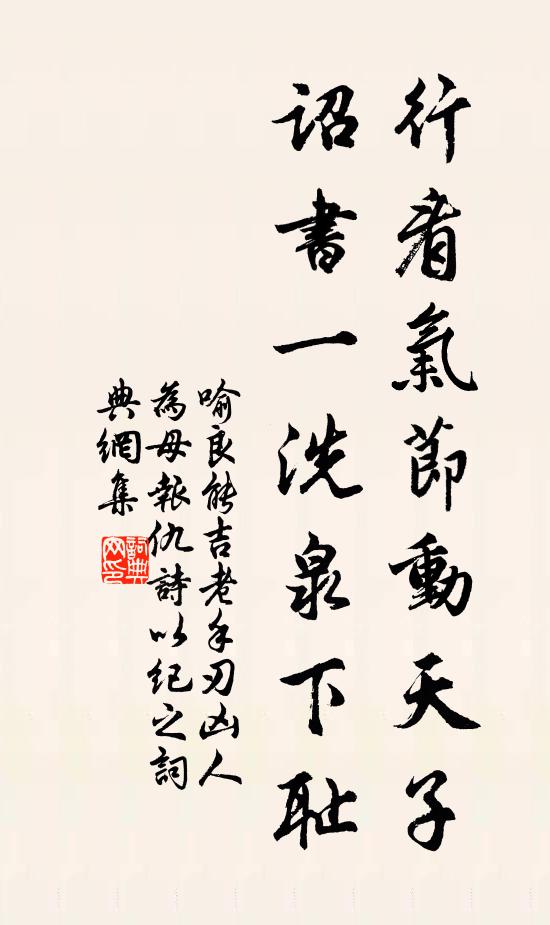 行看氣節動天子
詔書一洗泉下耻
喻良能吉老手刃凶人
為母報仇詩以纪之詞
典網集
詞典
网印